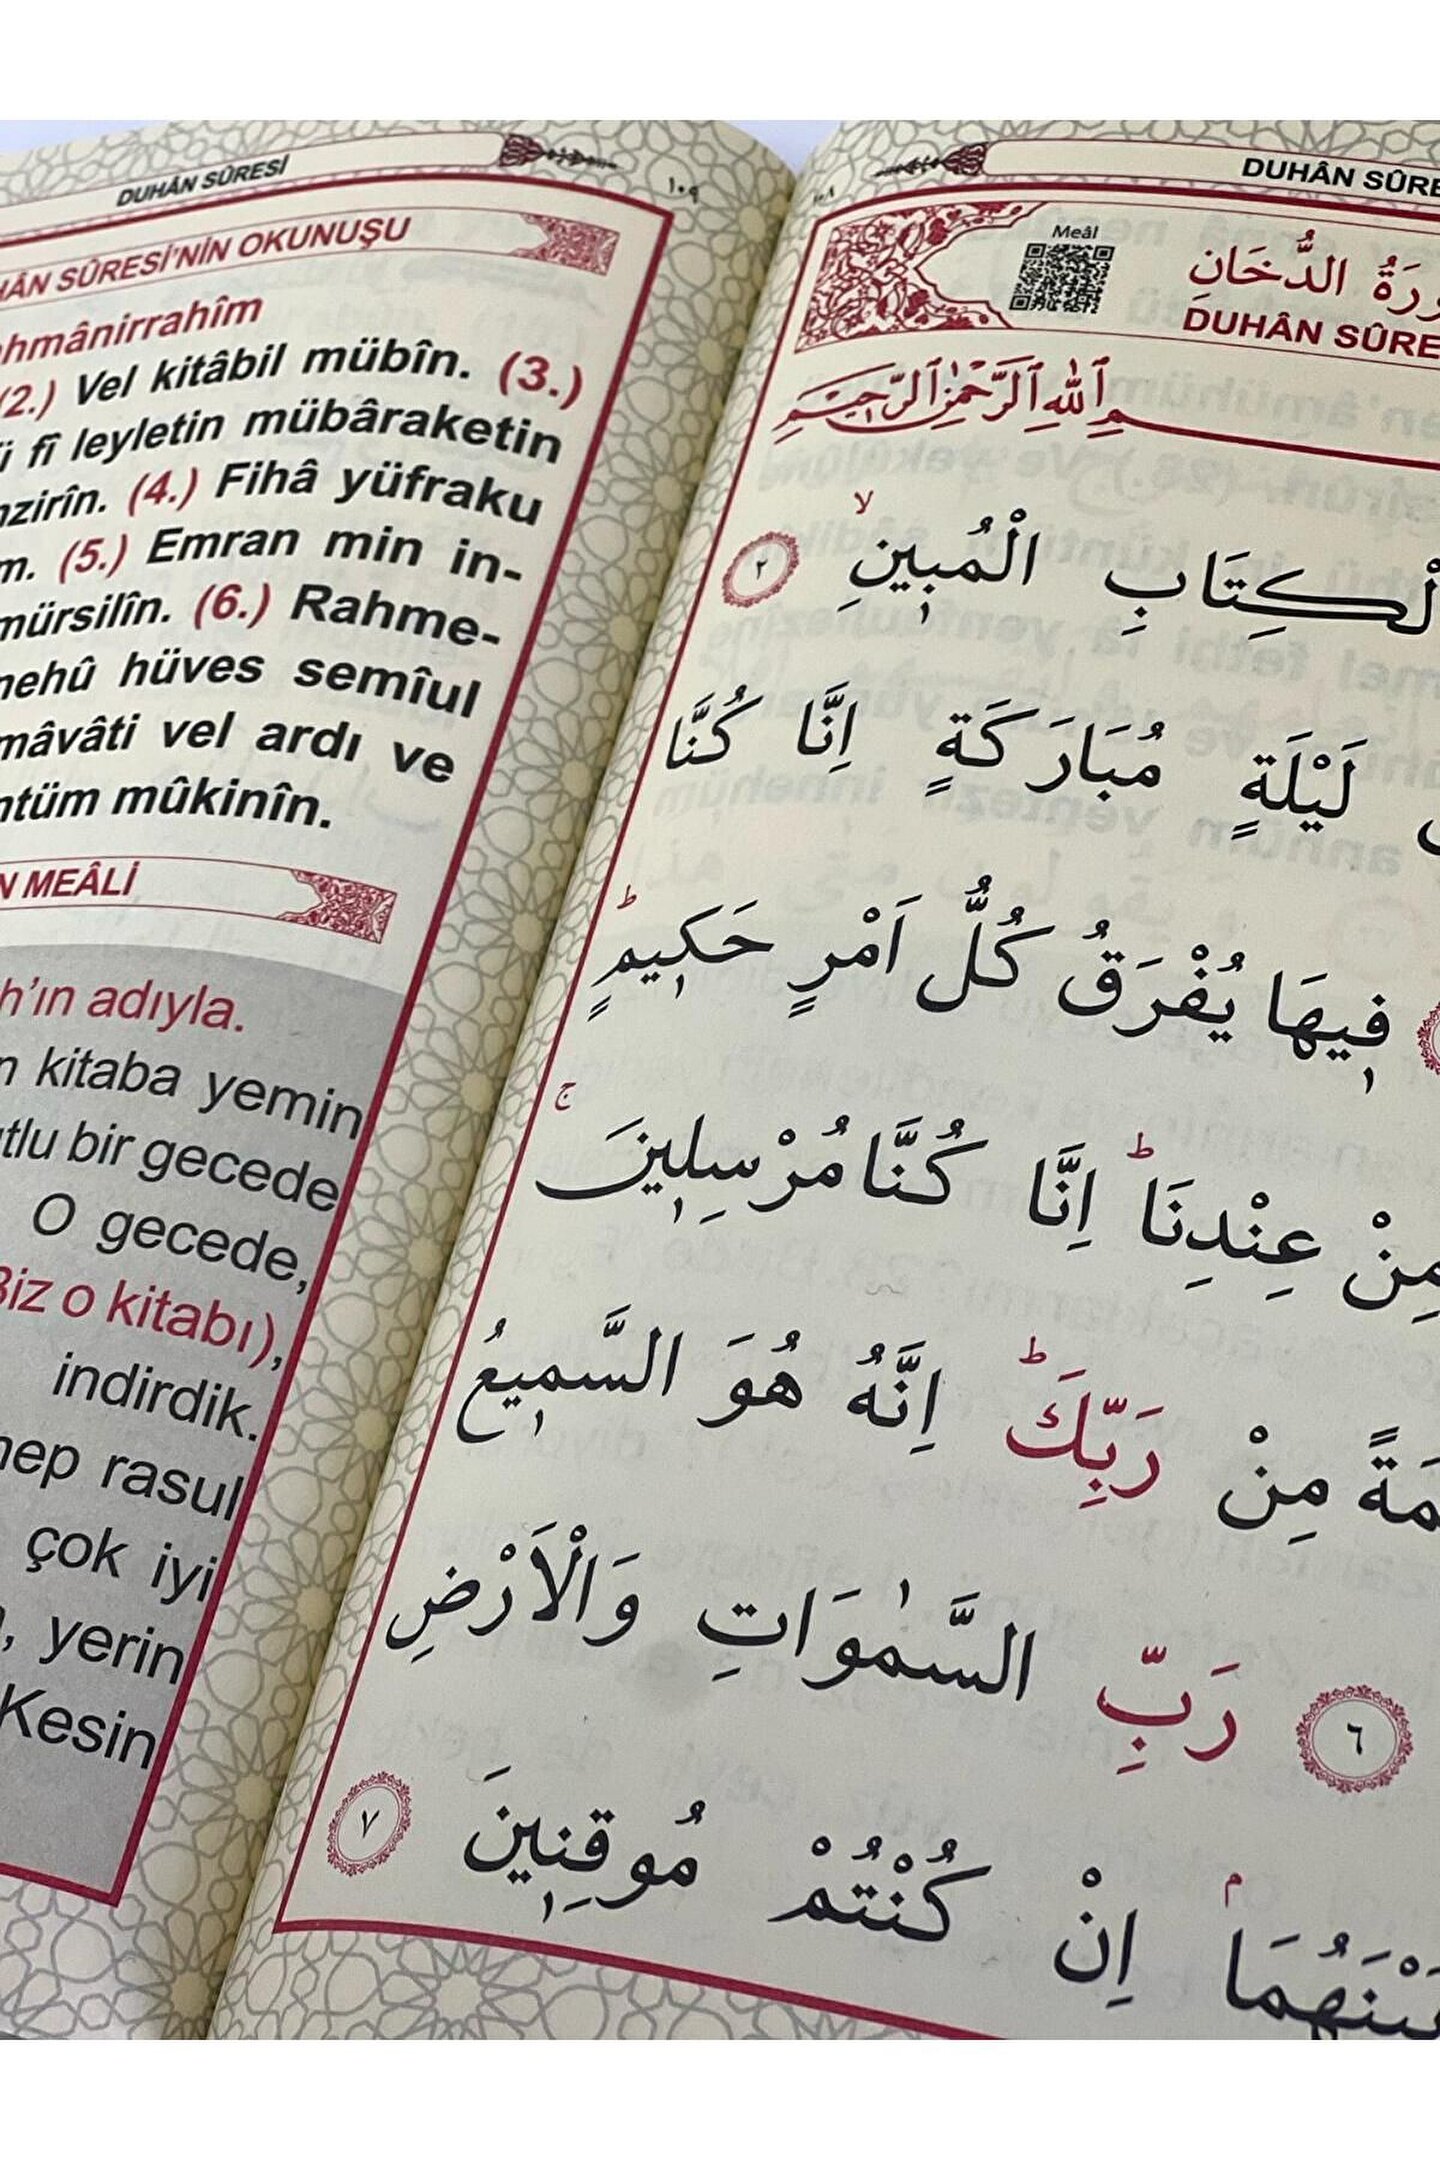 DUHÂN SÛRESİ
١٠٩
HÂN SÛRESİ'NİN OKUNUŞU
ahmânirrahîm
(2.) Vel kitâbil mübîn. (3.)
fî leyletin mübâraketin
nzirîn. (4.) Fihâ yüfraku
m. (5.) Emran min in-
mürsilîn. (6.) Rahme-
nehû hüves semîul
mâvâti vel ardı ve
ntüm mûkinîn.
N MEÂLİ
h'ın adıyla.
n kitaba yemin
tlu bir gecede
O gecede,
Biz o kitabı),
indirdik.
hep rasul
çok iyi
, yerin
Kesin
DUHÂN SÛRE
١٠٨
Meâl
ورَةُ الدُّخَانِ
DUHÂN SÛRE
ـمِ اللهِ الرَّحْمٰنِ الرَّحِيمِ
لْكِتَابِ الْمُبِينِ ۙ ٢
لَيْلَةٍ مُبَارَكَةٍ اِنَّا كُنَّا
فِيهَا يُفْرَقُ كُلُّ اَمْرٍ حَكِيمٍ ۜ
مِنْ عِنْدِنَا ۜ اِنَّا كُنَّا مُرْسِلِينَ ۚ
مَةً مِنْ رَبِّكَ ۜ اِنَّهُ هُوَ السَّمِيعُ
٦ رَبِّ السَّمٰوَاتِ وَالْاَرْضِ
بَيْنَهُمَا ۢ اِنْ كُنْتُمْ مُوقِنِينَ ٧